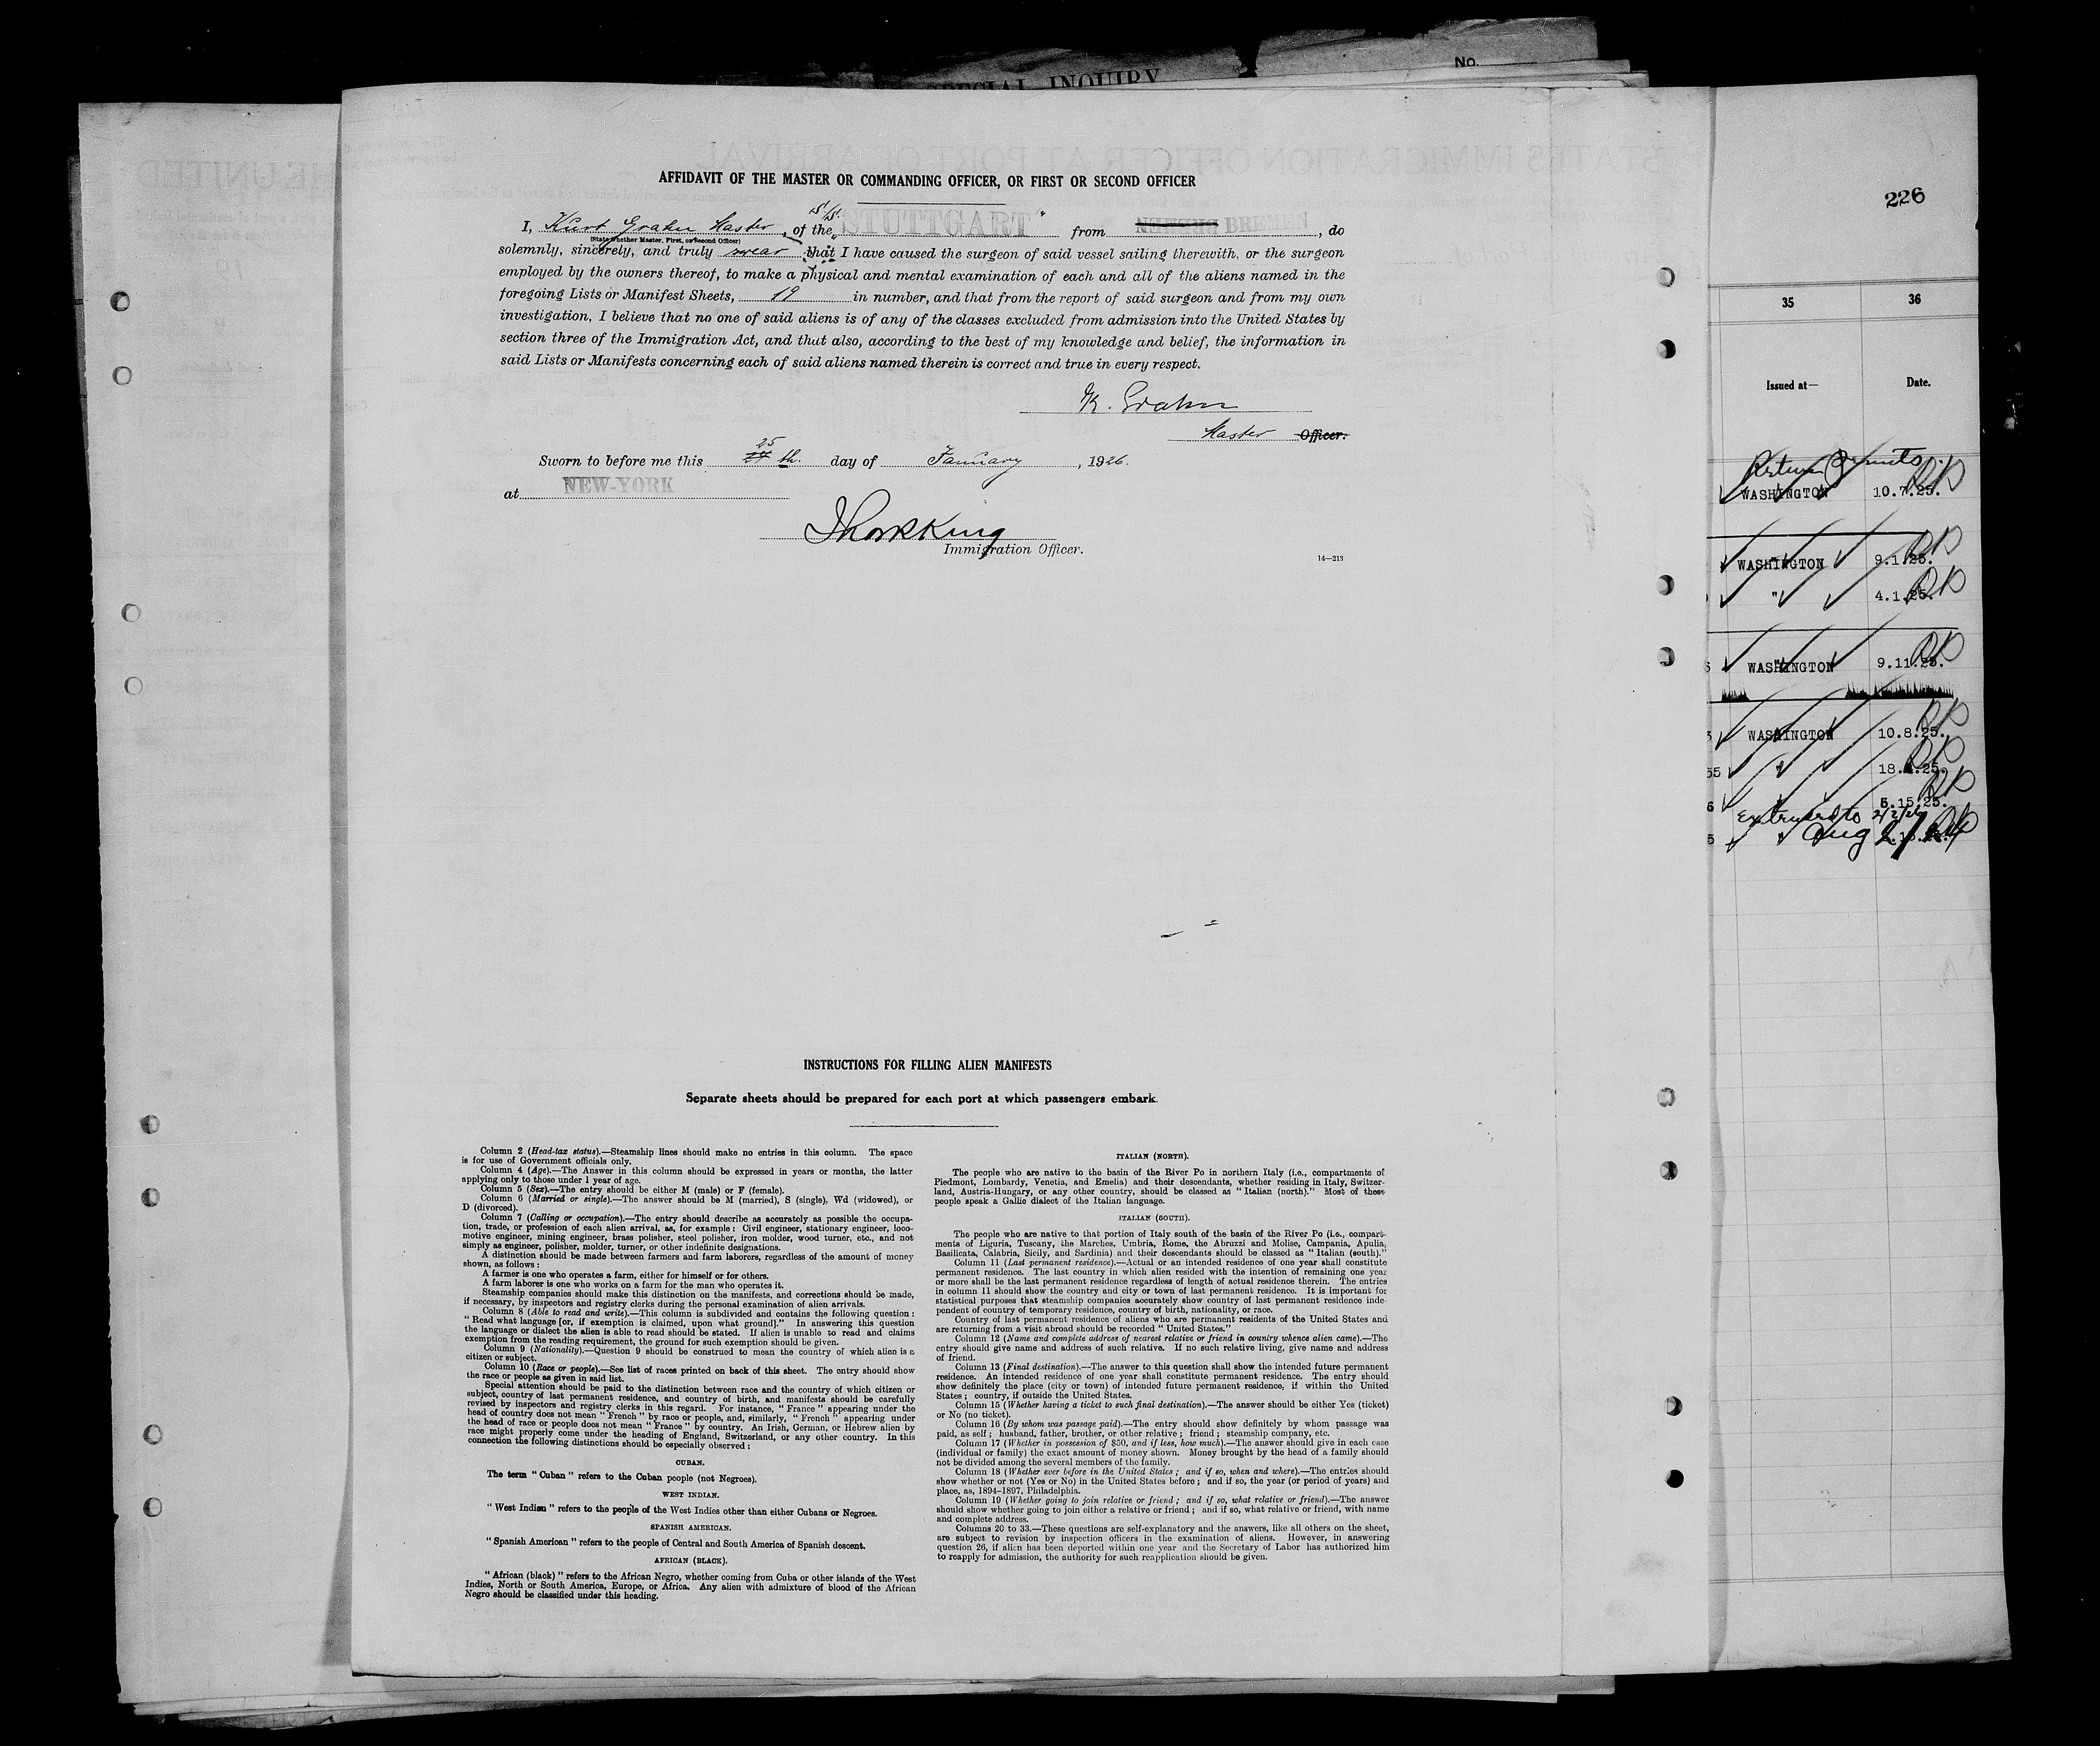 SPECIAL INQUIRY
No.
226
AFFIDAVIT OF THE MASTER OR COMMANDING OFFICER, OR FIRST OR SECOND OFFICER
I, Kurt Grahn Master, of the S/S. "STUTTGART" from BREMEN, do
(State whether Master, First, or Second Officer)
solemnly, sincerely, and truly swear that I have caused the surgeon of said vessel sailing therewith, or the surgeon
employed by the owners thereof, to make a physical and mental examination of each and all of the aliens named in the
foregoing Lists or Manifest Sheets, 19 in number, and that from the report of said surgeon and from my own
investigation, I believe that no one of said aliens is of any of the classes excluded from admission into the United States by
section three of the Immigration Act, and that also, according to the best of my knowledge and belief, the information in
said Lists or Manifests concerning each of said aliens named therein is correct and true in every respect.
K. Grahn
Master Officer.
Sworn to before me this 25 th. day of January, 1926.
at NEW-YORK
Immigration Officer.
14—213
35 36
Issued at— Date.
Return Permits
WASHINGTON 10.7.25.
WASHINGTON 9.1.25.
" 4.1.25.
WASHINGTON 9.11.25.
WASHINGTON 10.8.25.
55 " 18. .25.
6 " 5.15.25.
extended to
Aug
INSTRUCTIONS FOR FILLING ALIEN MANIFESTS
Separate sheets should be prepared for each port at which passengers embark.
Column 2 (Head-tax status).—Steamship lines should make no entries in this column. The space
is for use of Government officials only.
Column 4 (Age).—The Answer in this column should be expressed in years or months, the latter
applying only to those under 1 year of age.
Column 5 (Sex).—The entry should be either M (male) or F (female).
Column 6 (Married or single).—The answer should be M (married), S (single), Wd (widowed), or
D (divorced).
Column 7 (Calling or occupation).—The entry should describe as accurately as possible the occupa-
tion, trade, or profession of each alien arrival, as, for example: Civil engineer, stationary engineer, loco-
motive engineer, mining engineer, brass polisher, steel polisher, iron molder, wood turner, etc., and not
simply as engineer, polisher, molder, turner, or other indefinite designations.
A distinction should be made between farmers and farm laborers, regardless of the amount of money
shown, as follows:
A farmer is one who operates a farm, either for himself or for others.
A farm laborer is one who works on a farm for the man who operates it.
Steamship companies should make this distinction on the manifests, and corrections should be made,
if necessary, by inspectors and registry clerks during the personal examination of alien arrivals.
Column 8 (Able to read and write).—This column is subdivided and contains the following question:
"Read what language [or, if exemption is claimed, upon what ground]." In answering this question
the language or dialect the alien is able to read should be stated. If alien is unable to read and claims
exemption from the reading requirement, the ground for such exemption should be given.
Column 9 (Nationality).—Question 9 should be construed to mean the country of which alien is a
citizen or subject.
Column 10 (Race or people).—See list of races printed on back of this sheet. The entry should show
the race or people as given in said list.
Special attention should be paid to the distinction between race and the country of which citizen or
subject, country of last permanent residence, and country of birth, and manifests should be carefully
revised by inspectors and registry clerks in this regard. For instance, "France" appearing under the
head of country does not mean "French" by race or people, and, similarly, "French" appearing under
the head of race or people does not mean "France" by country. An Irish, German, or Hebrew alien by
race might properly come under the heading of England, Switzerland, or any other country. In this
connection the following distinctions should be especially observed:
CUBAN.
The term "Cuban" refers to the Cuban people (not Negroes).
WEST INDIAN.
"West Indian" refers to the people of the West Indies other than either Cubans or Negroes.
SPANISH AMERICAN.
"Spanish American" refers to the people of Central and South America of Spanish descent.
AFRICAN (BLACK).
"African (black)" refers to the African Negro, whether coming from Cuba or other islands of the West
Indies, North or South America, Europe, or Africa. Any alien with admixture of blood of the African
Negro should be classified under this heading.
ITALIAN (NORTH).
The people who are native to the basin of the River Po in northern Italy (i.e., compartments of
Piedmont, Lombardy, Venetia, and Emelia) and their descendants, whether residing in Italy, Switzer-
land, Austria-Hungary, or any other country, should be classed as "Italian (north)." Most of these
people speak a Gallic dialect of the Italian language.
ITALIAN (SOUTH).
The people who are native to that portion of Italy south of the basin of the River Po (i.e., compart-
ments of Liguria, Tuscany, the Marches, Umbria, Rome, the Abruzzi and Molise, Campania, Apulia,
Basilicata, Calabria, Sicily, and Sardinia) and their descendants should be classed as "Italian (south)."
Column 11 (Last permanent residence).—Actual or an intended residence of one year shall constitute
permanent residence. The last country in which alien resided with the intention of remaining one year
or more shall be the last permanent residence regardless of length of actual residence therein. The entries
in column 11 should show the country and city or town of last permanent residence. It is important for
statistical purposes that steamship companies accurately show country of last permanent residence inde-
pendent of country of temporary residence, country of birth, nationality, or race.
Country of last permanent residence of aliens who are permanent residents of the United States and
are returning from a visit abroad should be recorded "United States."
Column 12 (Name and complete address of nearest relative or friend in country whence alien came).—The
entry should give name and address of such relative. If no such relative living, give name and address
of friend.
Column 13 (Final destination).—The answer to this question shall show the intended future permanent
residence. An intended residence of one year shall constitute permanent residence. The entry should
show definitely the place (city or town) of intended future permanent residence, if within the United
States; country, if outside the United States.
Column 15 (Whether having a ticket to such final destination).—The answer should be either Yes (ticket)
or No (no ticket).
Column 16 (By whom was passage paid).—The entry should show definitely by whom passage was
paid, as self; husband, father, brother, or other relative; friend; steamship company, etc.
Column 17 (Whether in possession of $50, and if less, how much).—The answer should give in each case
(individual or family) the exact amount of money shown. Money brought by the head of a family should
not be divided among the several members of the family.
Column 18 (Whether ever before in the United States; and if so, when and where).—The entries should
show whether or not (Yes or No) in the United States before; and if so, the year (or period of years) and
place, as, 1894-1897, Philadelphia.
Column 19 (Whether going to join relative or friend; and if so, what relative or friend).—The answer
should show whether going to join either a relative or friend; and if so, what relative or friend, with name
and complete address.
Columns 20 to 33.—These questions are self-explanatory and the answers, like all others on the sheet,
are subject to revision by inspection officers in the examination of aliens. However, in answering
question 26, if alien has been deported within one year and the Secretary of Labor has authorized him
to reapply for admission, the authority for such reapplication should be given.